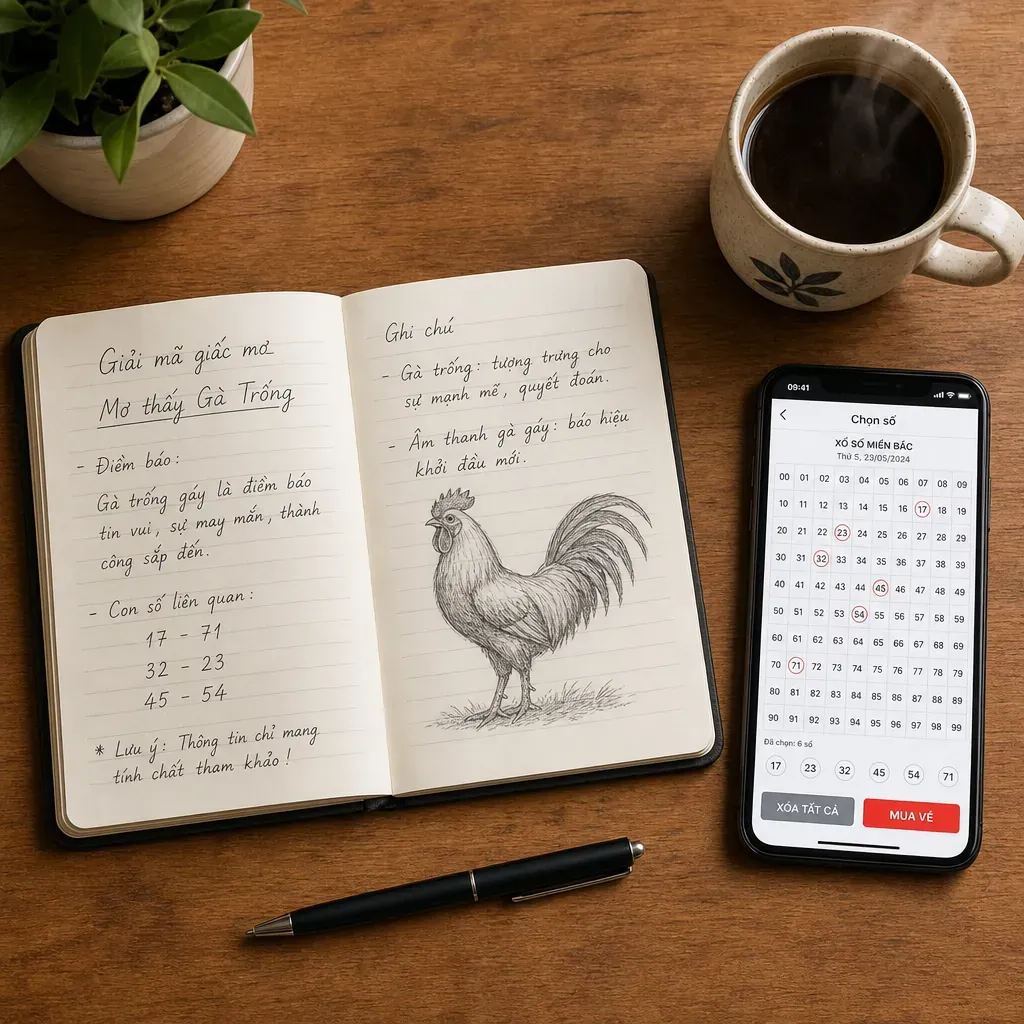 Giải mã giấc mơ
Mơ thấy Gà Trống
- Điềm báo:
Gà trống gáy là điềm báo
tin vui, sự may mắn, thành
công sắp đến.
- Con số liên quan:
17 - 71
32 - 23
45 - 54
* Lưu ý: Thông tin chỉ mang
tính chất tham khảo!
Ghi chú
- Gà trống: tượng trưng cho
sự mạnh mẽ, quyết đoán.
- Âm thanh gà gáy: báo hiệu
khởi đầu mới.
09:41
Chọn số
XỔ SỐ MIỀN BẮC
Thứ 5, 23/05/2024
00 01 02 03 04 05 06 07 08 09
10 11 12 13 14 15 16 17 18 19
20 21 22 23 24 25 26 27 28 29
30 31 32 33 34 35 36 37 38 39
40 42 43 43 44 45 46 47 48 49
50 51 52 53 54 55 56 57 58 59
60 61 62 63 64 65 66 67 68 69
70 71 72 73 74 75 76 77 78 79
80 81 82 83 84 85 86 87 88 89
90 91 92 93 94 95 96 97 98 99
Đã chọn: 6 số
17 23 32 45 54 71
XÓA TẤT CẢ
MUA VÉ